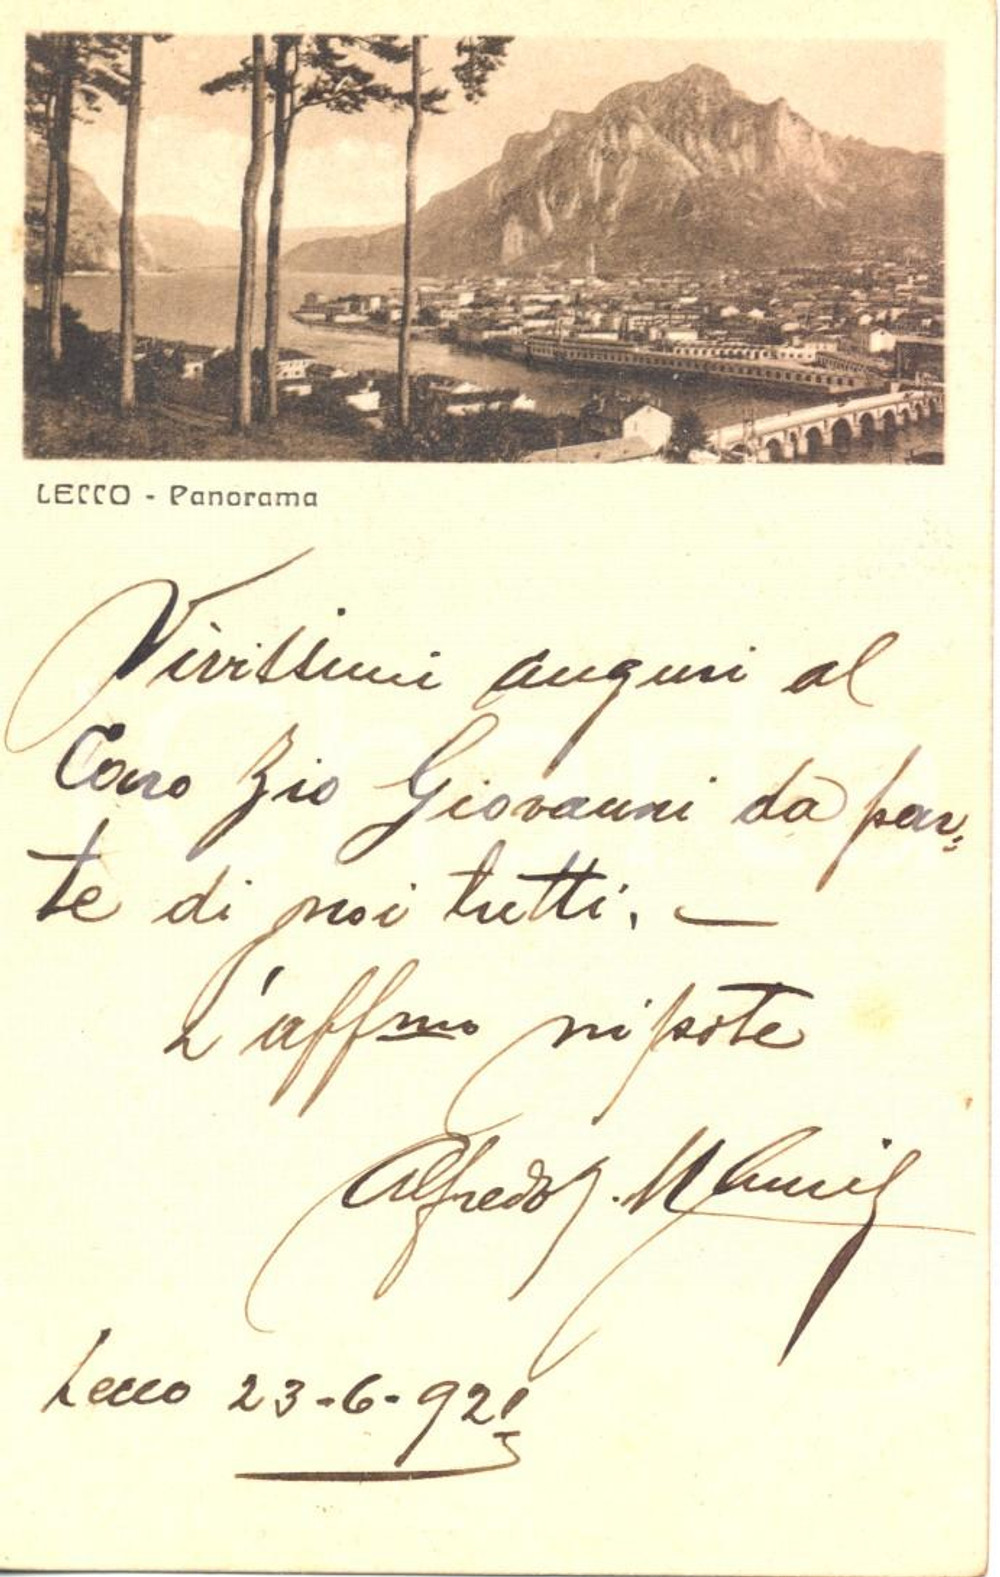 LECCO - Panorama
Vivissimi auguri al
Caro Zio Giovanni da par-
te di noi tutti. —
L'affmo nipote
Alfredo
Lecco 23-6-92